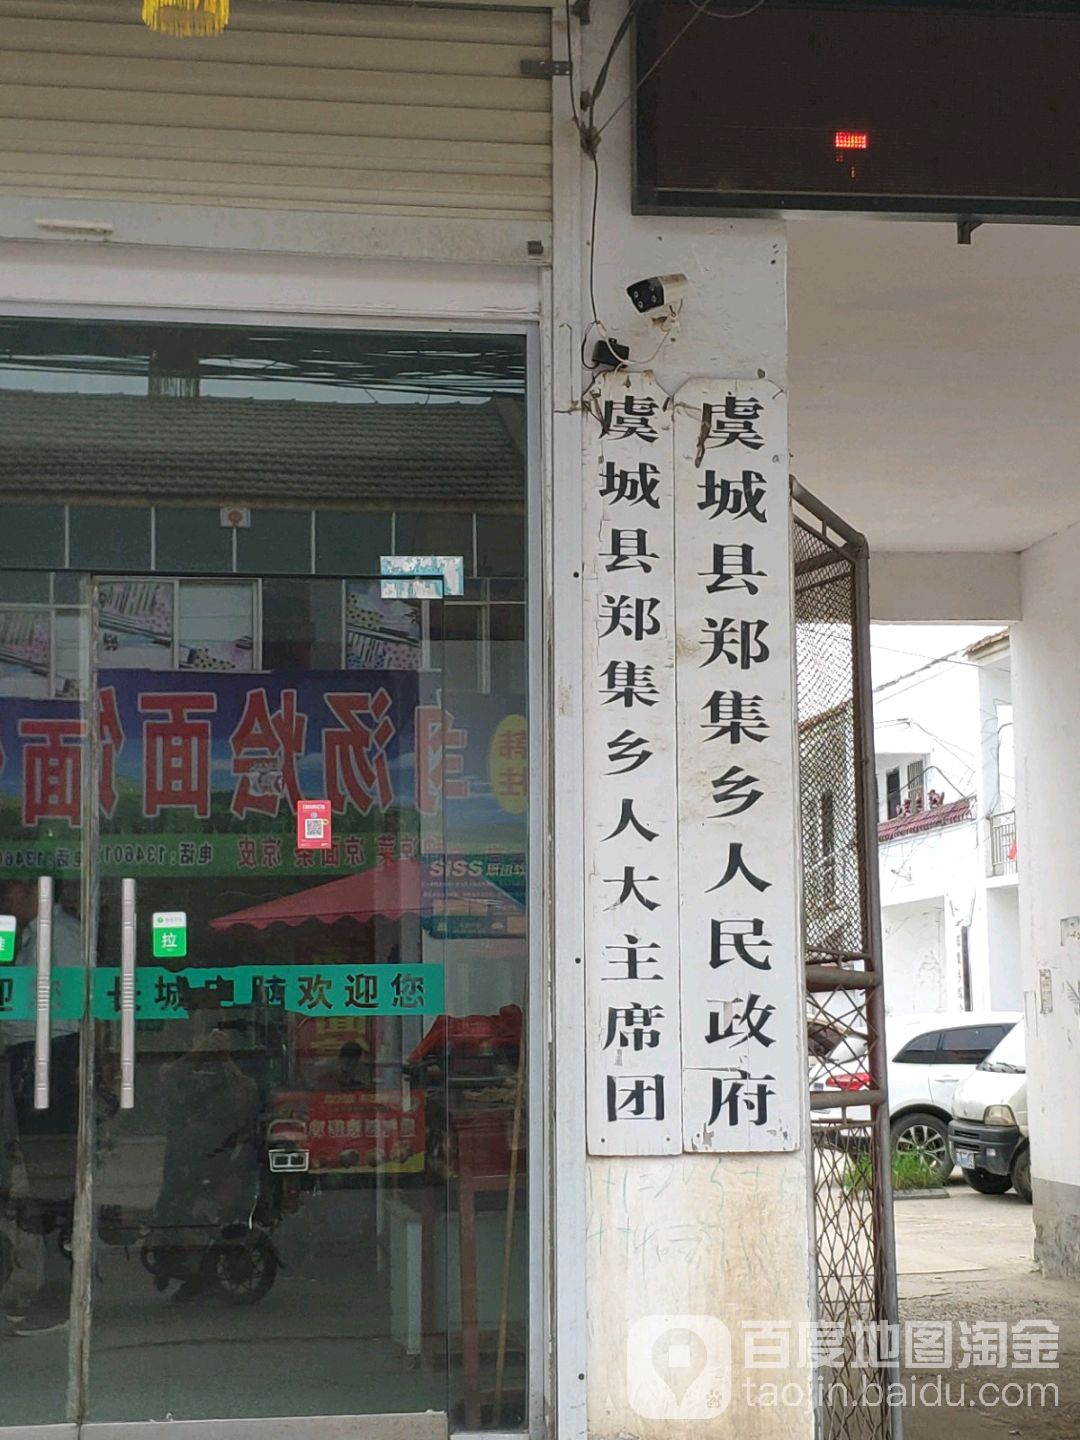 虞城县郑集乡人大主席团
虞城县郑集乡人民政府
汤烩面
凉面条 凉皮
电话:13460
SISS
拉
长城电脑欢迎您
百度地图淘金
taojin.baidu.com